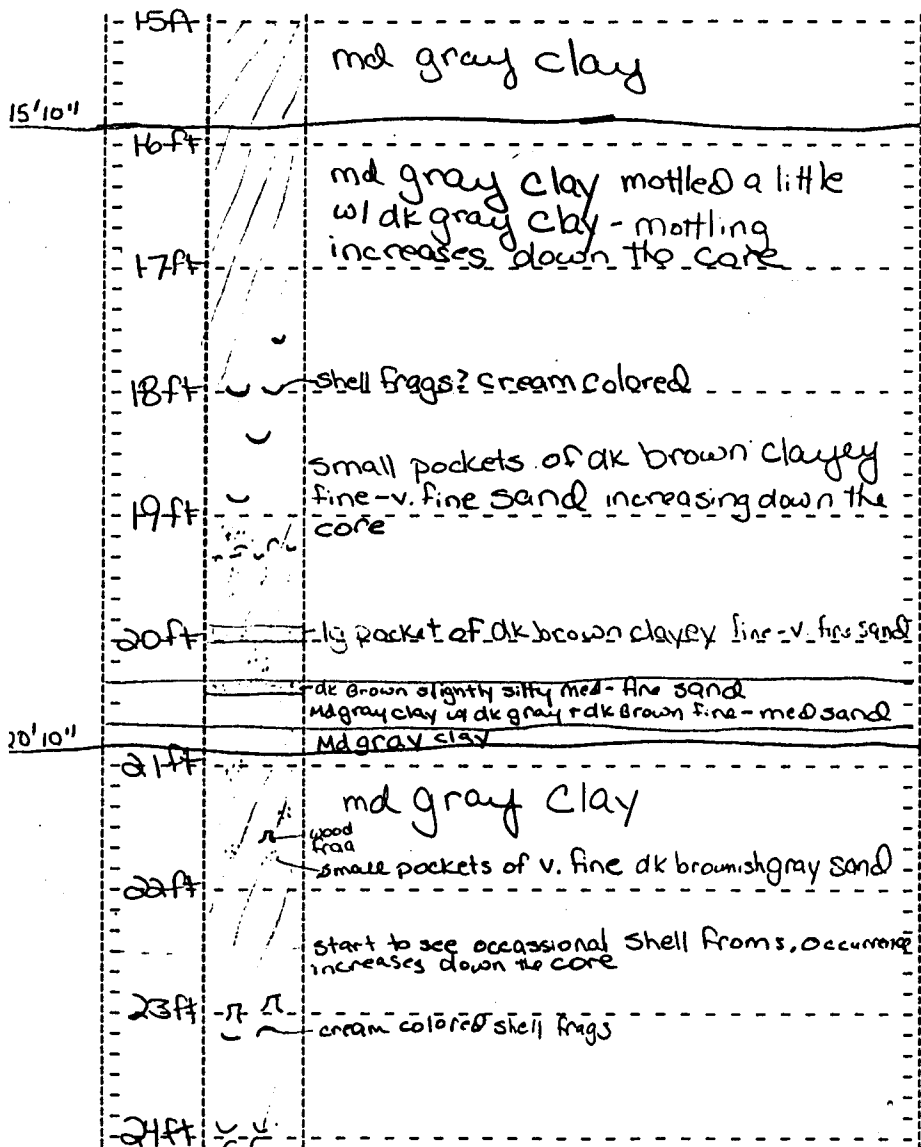 15ft
md gray clay
15'10"
16ft
md gray clay mottled a little
w/ dk gray clay - mottling
increases down the core
17ft
18ft
shell frags? cream colored
small pockets of dk brown clayey
fine-v. fine sand increasing down the
core
19ft
20ft
lg pocket of dk brown clayey fine-v. fine sand
dk Brown slightly silty med-fine sand
Md gray clay w/ dk gray + dk Brown fine-med sand
20'10"
Md gray clay
21ft
md gray clay
wood
frag
small pockets of v. fine dk brownish gray sand
22ft
start to see occassional shell froms, occurrence
increases down the core
23ft
cream colored shell frags
24ft